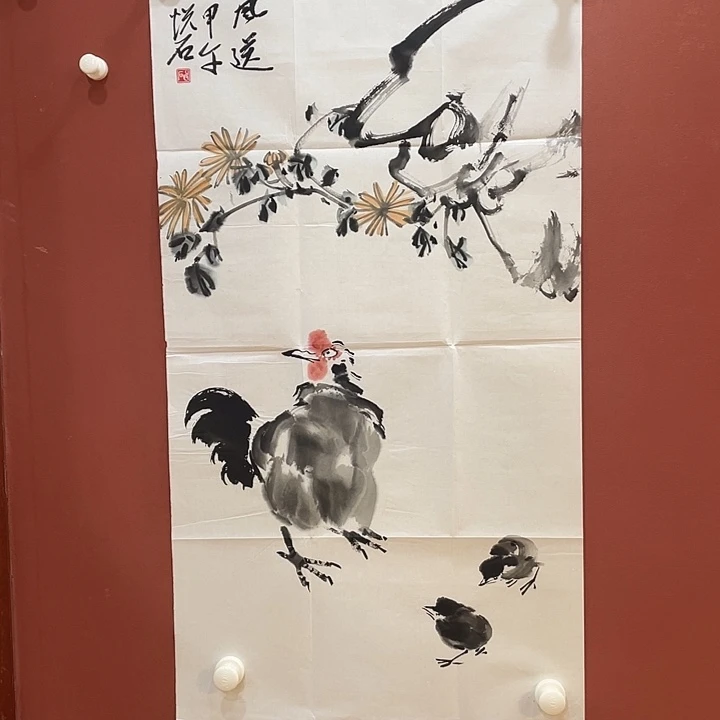 风送
甲午
悦石